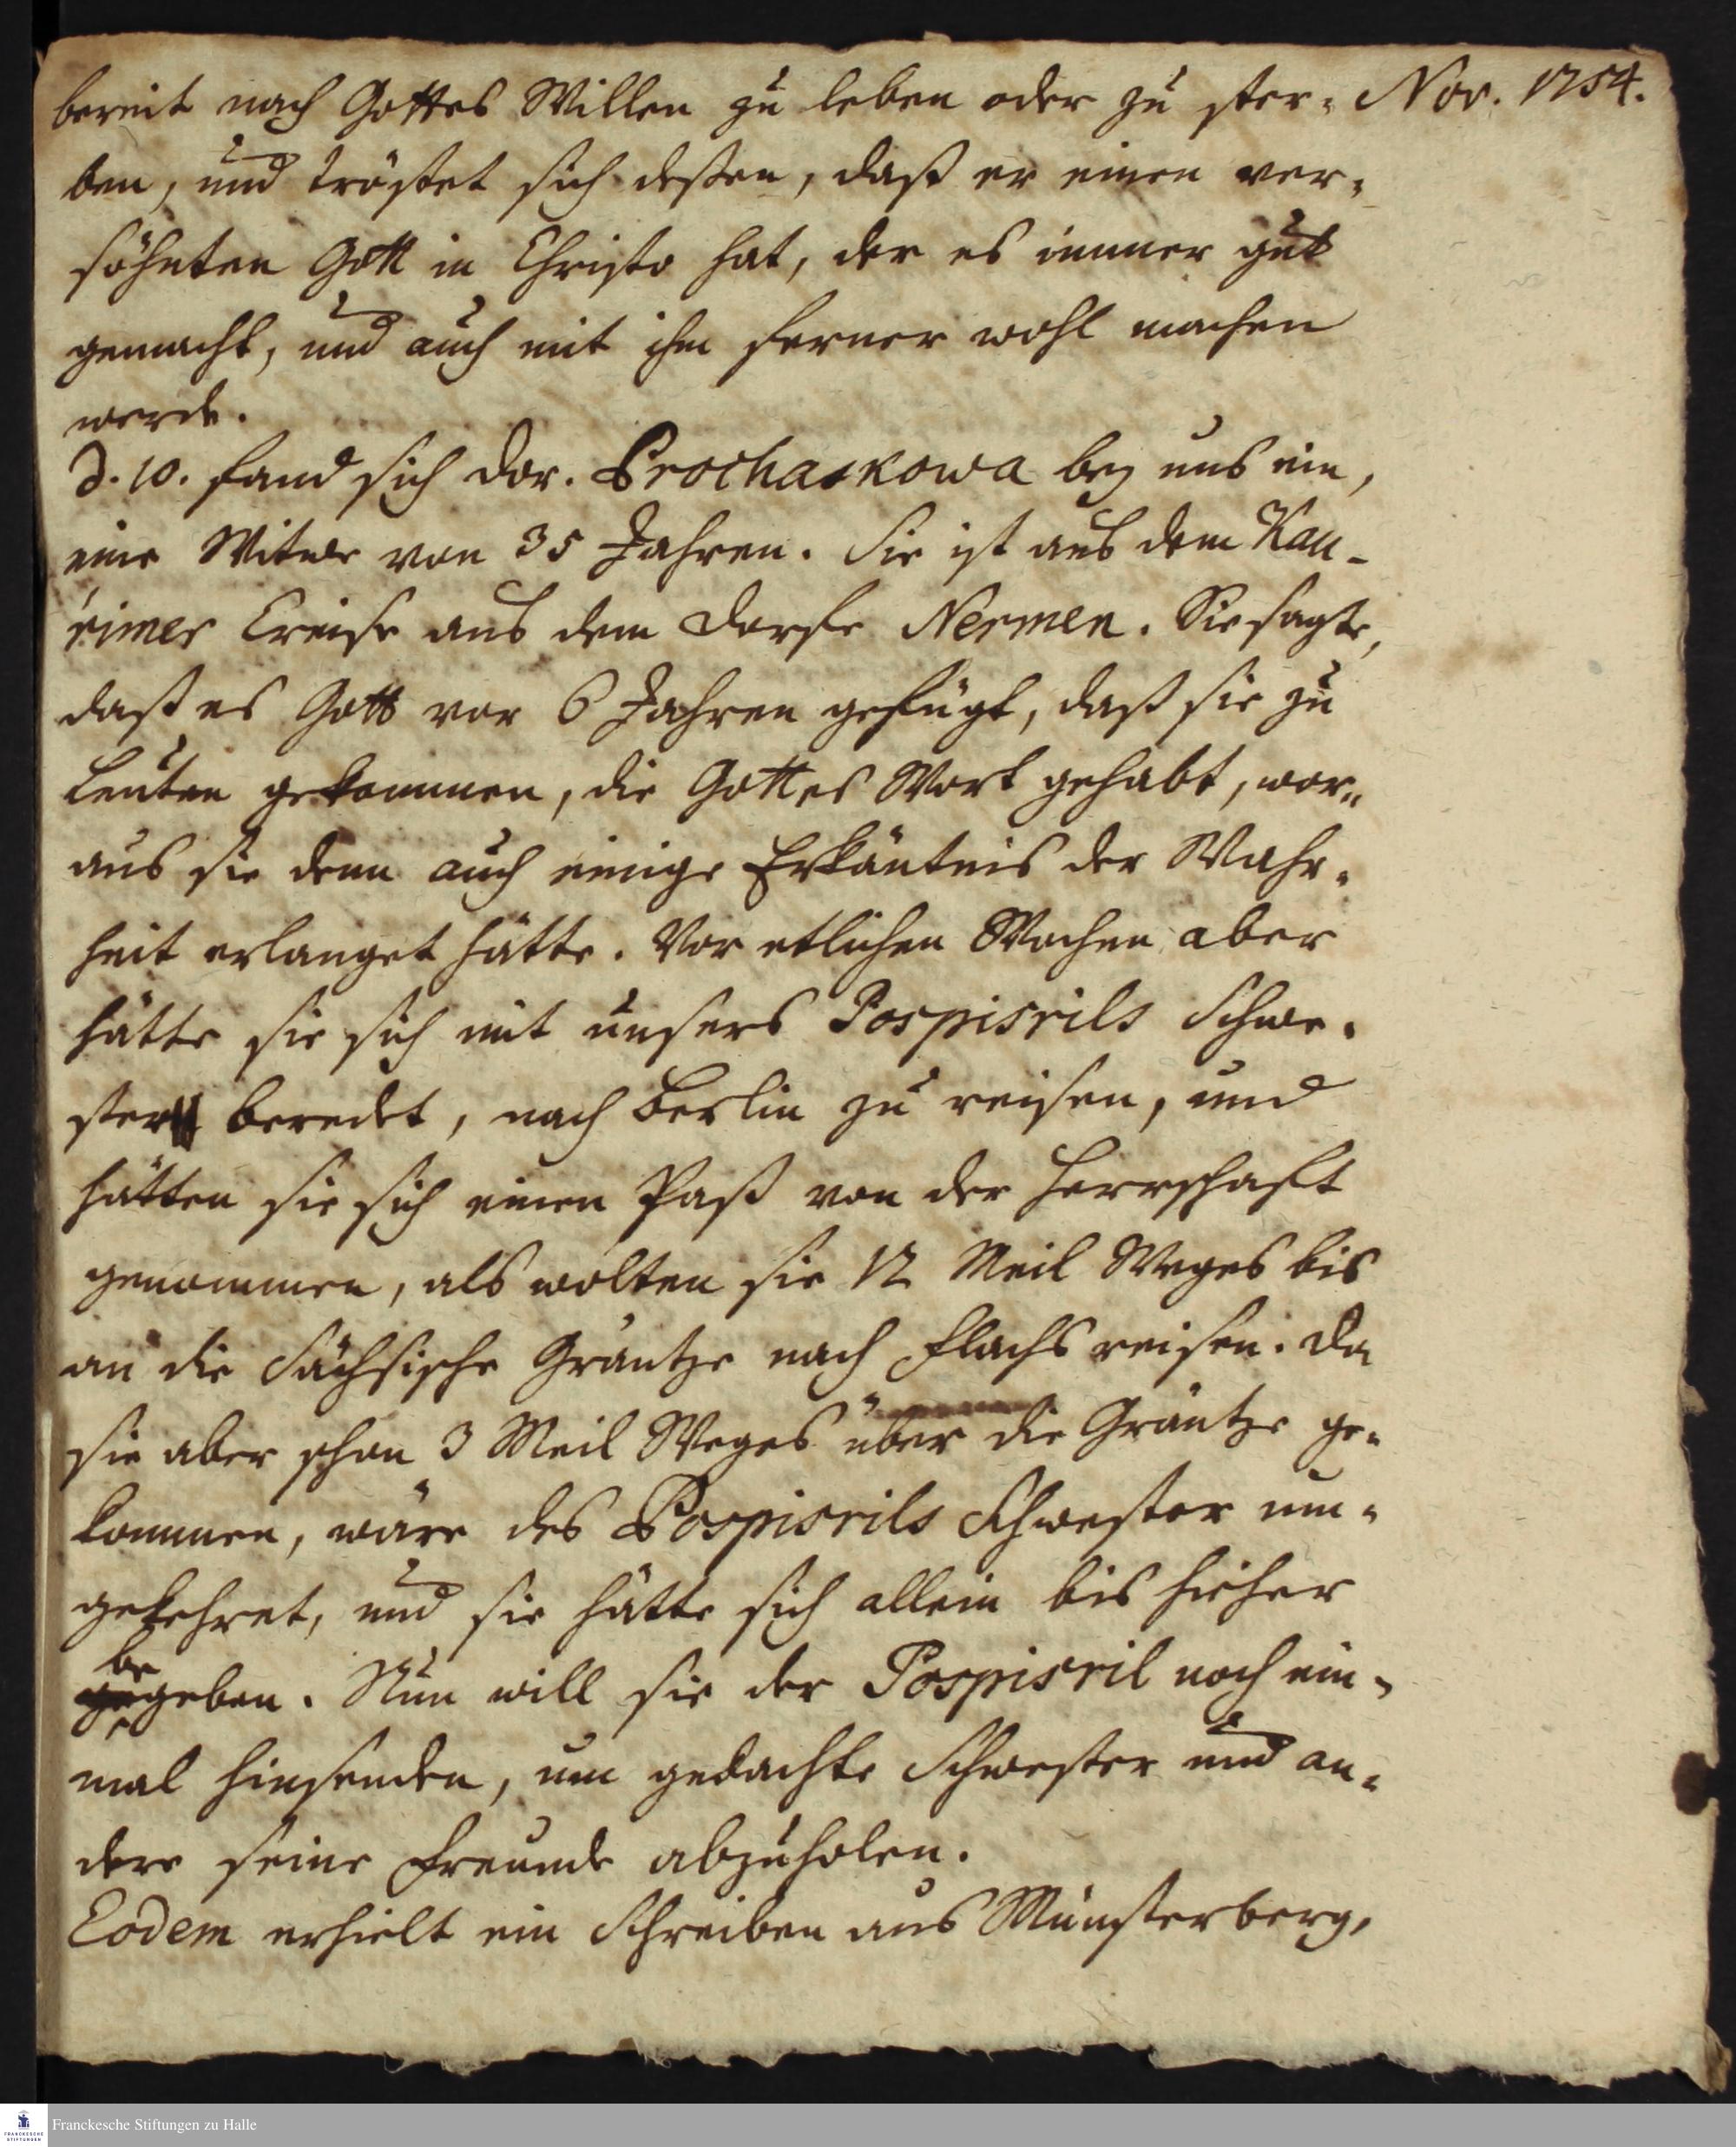 bereit nach Gottes Willen zu leben oder zu ster- Nov. 1754.
ben, und tröstet sich deßen, daß er einen ver-
söhnten Gott in Christo hat, der es immer gut
gemacht, und auch mit ihm ferner wohl machen
werde.
d. 10. fand sich Dor. Prochaskowa bey uns ein,
eine Witwe von 35 Jahren. Sie ist aus dem Kau-
rimer Creise aus dem Dorfe Nermen. Sie sagte,
daß es Gott vor 6 Jahren gefügt, daß sie zu
Leuten gekommen, die Gottes Wort gehabt, wor-
aus sie denn auch einige Erkäntnis der Wahr-
heit erlanget hätte. Vor etlichen Wochen aber
hätte sie sich mit unsers Pospisrils Schwe-
ster beredet, nach Berlin zu reisen, und
hätten sie sich einen Paß von der Herrschaft
genommen, als wolten sie 12 Meil Weges bis
an die Sächsische Gräntze nach Flachs reisen. Da
sie aber schon 3 Meil Weges über die Gräntze ge-
kommen, wäre des Pospisrils Schwester um-
gekehret, und sie hätte sich allein bis hieher
begeben. Nun will sie der Pospisril noch ein-
mal hinsenden, um gedachte Schwester und an-
dere seine Freunde abzuholen.
Eodem erhielt ein Schreiben aus Münsterberg,
Franckesche Stiftungen zu Halle
FRANCKESCHE
STIFTUNGEN